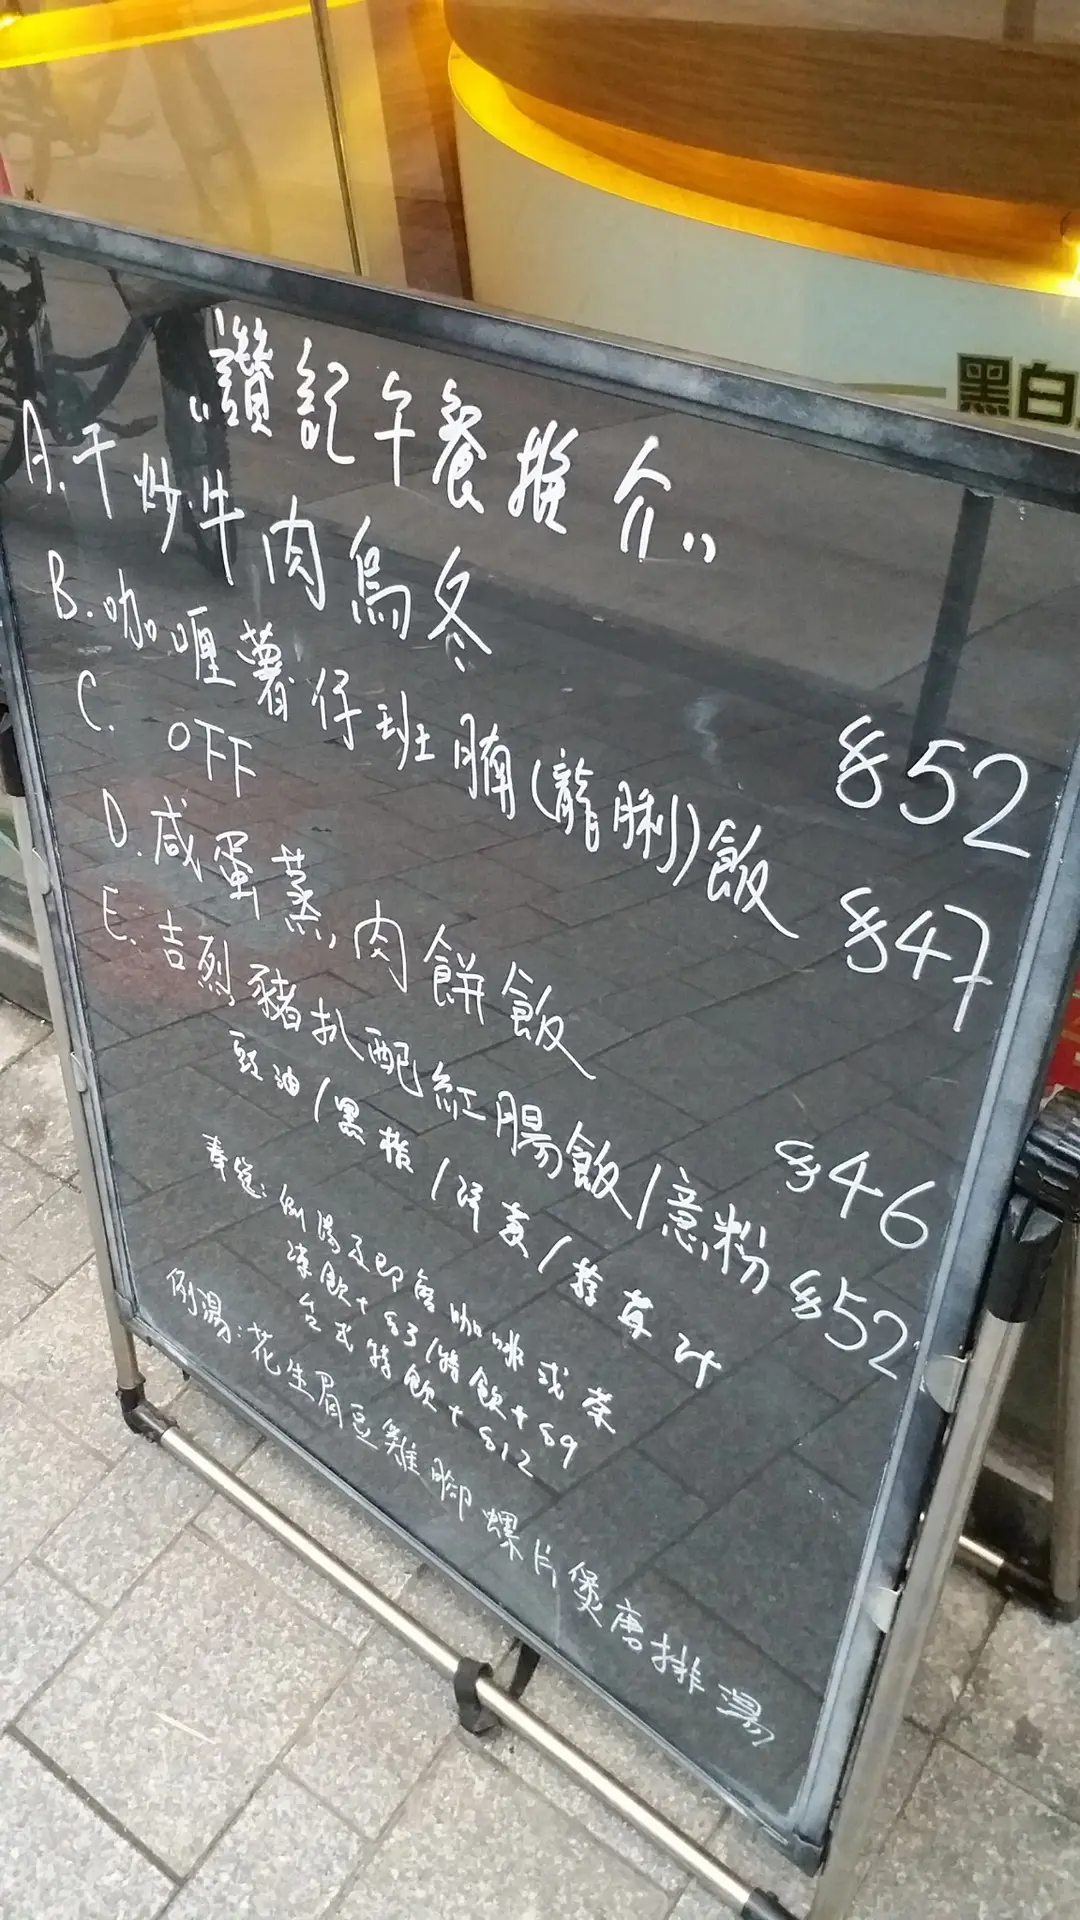 黑白
“讚記午餐推介”
A. 干炒牛肉烏冬 $52
B. 咖喱薯仔班腩(龍脷)飯 $47
C. OFF
D. 咸蛋蒸肉餅飯 $46
E. 吉烈豬扒配紅腸飯/意粉 $52
豉油/黑椒/洋葱/蒜茸汁
奉送: 例湯及即磨咖啡或茶
凍飲+$3/特飲+$9
台式特飲+$12
例湯:花生眉豆雞腳螺片煲唐排湯